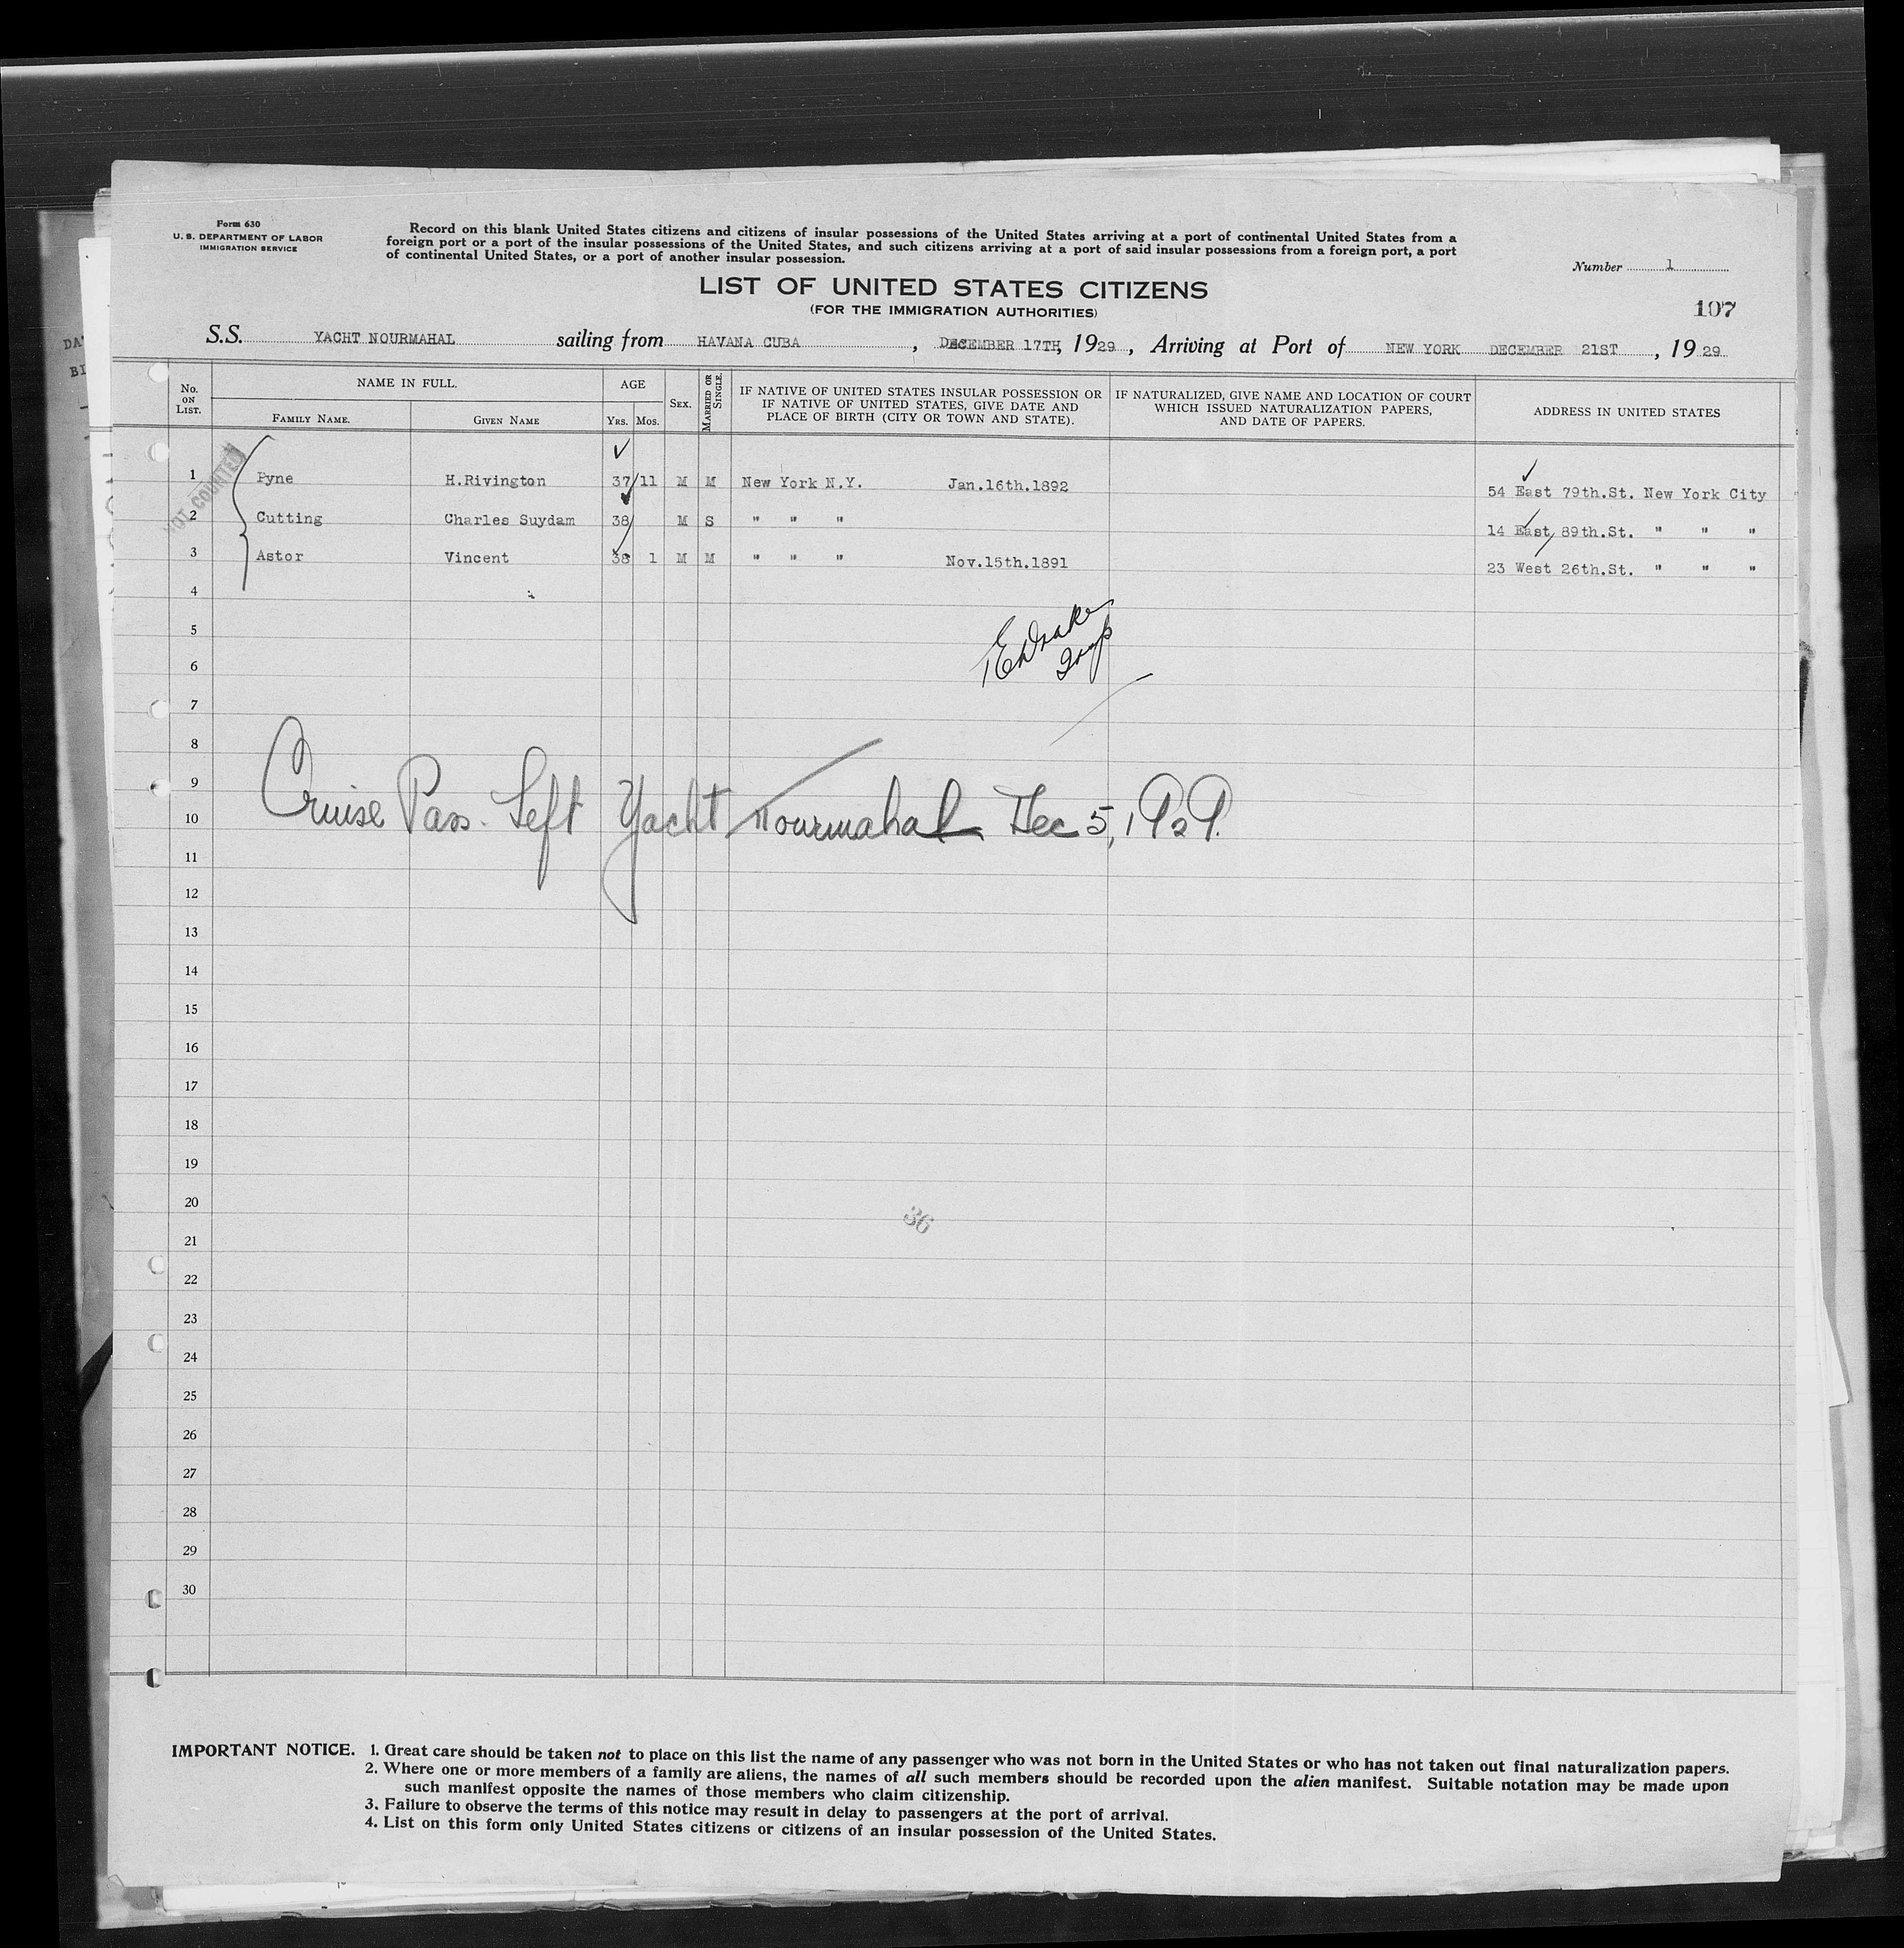 Form 630
U. S. DEPARTMENT OF LABOR
IMMIGRATION SERVICE
Record on this blank United States citizens and citizens of insular possessions of the United States arriving at a port of continental United States from a
foreign port or a port of the insular possessions of the United States, and such citizens arriving at a port of said insular possessions from a foreign port, a port
of continental United States, or a port of another insular possession.
Number 1
LIST OF UNITED STATES CITIZENS
(FOR THE IMMIGRATION AUTHORITIES)
107
S.S. YACHT NOURMAHAL sailing from HAVANA CUBA, DECEMBER 17TH, 1929, Arriving at Port of NEW YORK DECEMBER 21ST, 1929
No. ON LIST. NAME IN FULL. FAMILY NAME. GIVEN NAME AGE YRS. MOS. SEX. MARRIED OR SINGLE. IF NATIVE OF UNITED STATES INSULAR POSSESSION OR IF NATIVE OF UNITED STATES, GIVE DATE AND PLACE OF BIRTH (CITY OR TOWN AND STATE). IF NATURALIZED, GIVE NAME AND LOCATION OF COURT WHICH ISSUED NATURALIZATION PAPERS, AND DATE OF PAPERS. ADDRESS IN UNITED STATES
NOT COUNTED
1 Pyne H.Rivington 37 11 M M New York N.Y. Jan.16th.1892 54 East 79th.St. New York City
2 Cutting Charles Suydam 38 M S " " " 14 East 89th.St. " " "
3 Astor Vincent 38 1 M M " " " Nov.15th.1891 23 West 26th.St. " " "
4
5
6
7
8
9
Cruise Pass. Left Yacht Nourmahal Dec 5, 1929.
10
11
12
13
14
15
16
17
18
19
20
36
21
22
23
24
25
26
27
28
29
30
IMPORTANT NOTICE. 1. Great care should be taken not to place on this list the name of any passenger who was not born in the United States or who has not taken out final naturalization papers.
2. Where one or more members of a family are aliens, the names of all such members should be recorded upon the alien manifest. Suitable notation may be made upon
such manifest opposite the names of those members who claim citizenship.
3. Failure to observe the terms of this notice may result in delay to passengers at the port of arrival.
4. List on this form only United States citizens or citizens of an insular possession of the United States.